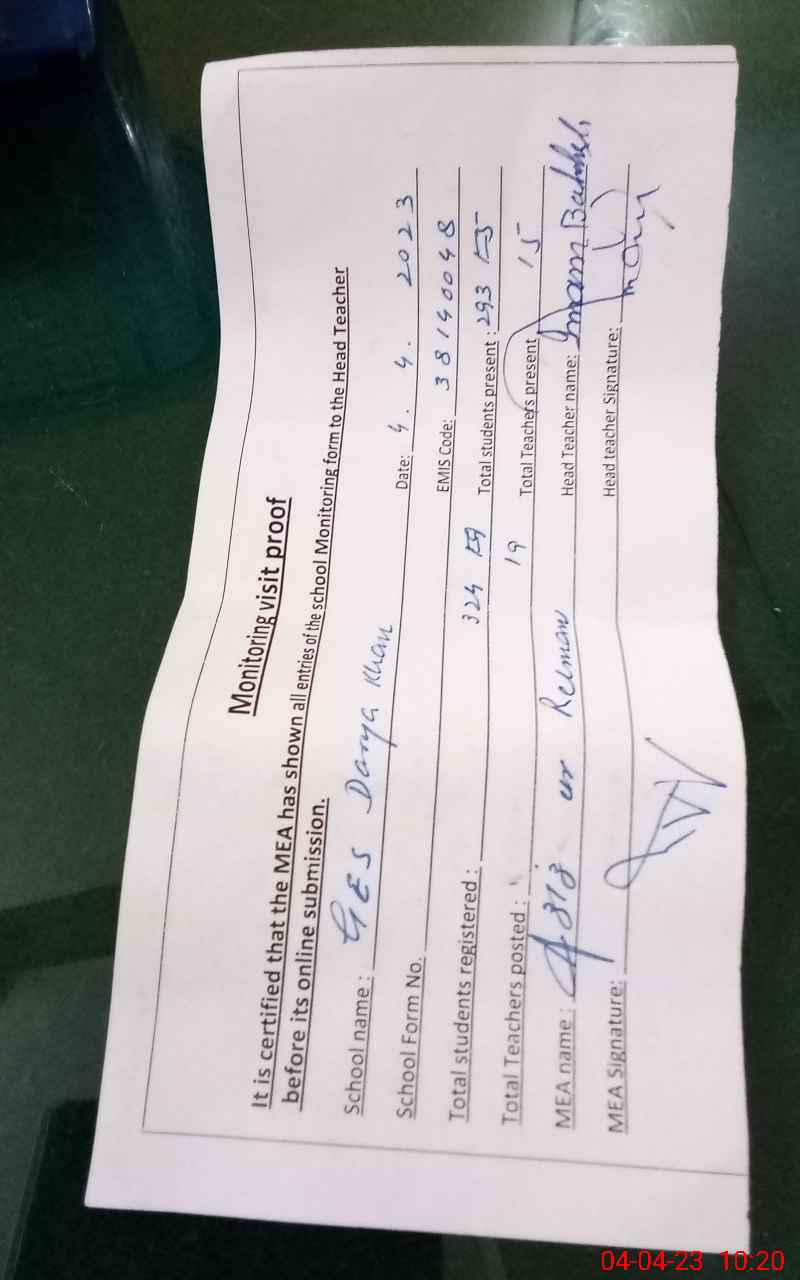 Monitoring visit proof
It is certified that the MEA has shown all entries of the school Monitoring form to the Head Teacher
before its online submission.
School name : GES Darya Khan Date: 4. 4. 2023
School Form No. EMIS Code: 38140048
Total students registered : 324 Total students present : 293
Total Teachers posted : 19 Total Teachers present 15
MEA name : Aziz ur Rehman Head Teacher name: Imam Bakhsh
MEA Signature: Head teacher Signature:
04-04-23 10:20